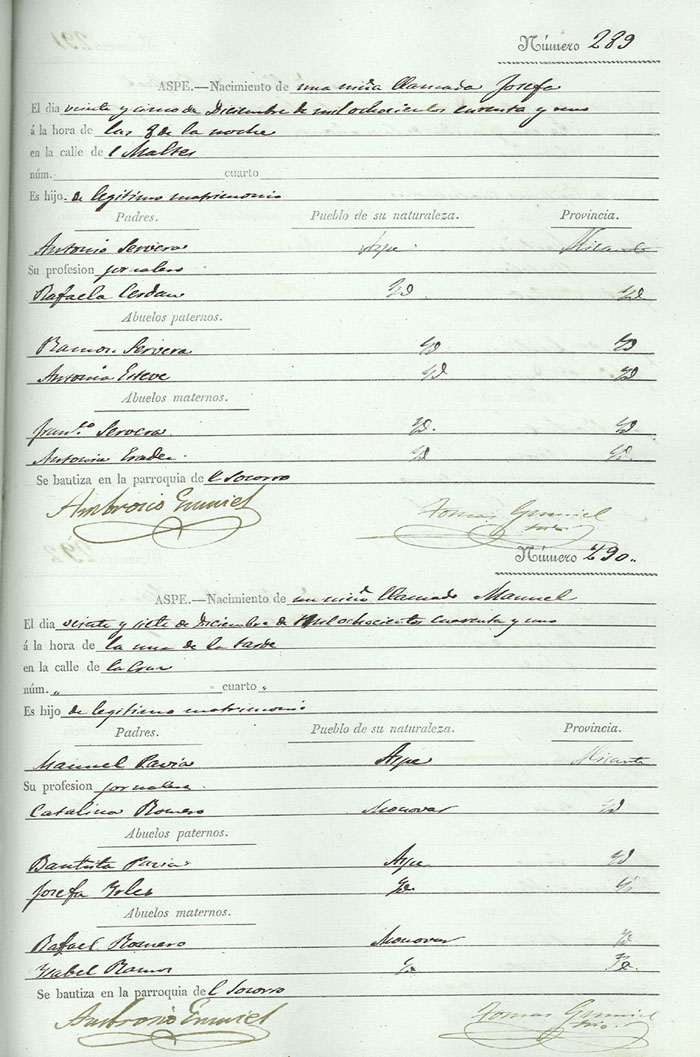 Número 289
ASPE.—Nacimiento de una niña llamada Josefa
El dia veinte y cinco de Diciembre de mil ochocientos cuarenta y uno
á la hora de las 8 de la noche
en la calle de l Maltes
núm. cuarto
Es hijo de legitimo matrimonio
Padres. Pueblo de su naturaleza. Provincia.
Antonio Servera Aspe Alicante
Su profesion jornalero
Rafaela Cerdan Yd Yd
Abuelos paternos.
Ramon Servera Yd Yd
Antonia Esteve Yd Yd
Abuelos maternos.
Fran.co Servera Yd. Yd
Antonia Yd Yd
Se bautiza en la parroquia de l Socorro
Ambrosio Gumiel Tomas Gumiel
Número 290..
ASPE.—Nacimiento de un niño llamado Manuel
El dia veinte y siete de diciembre de mil ochocientos cuarenta y uno
á la hora de la una de la tarde
en la calle de la Cruz
núm. „ cuarto „
Es hijo de legitimo matrimonio
Padres. Pueblo de su naturaleza. Provincia.
Manuel Pavia Aspe Alicante
Su profesion jornalero
Catalina Romero Monovar Yd
Abuelos paternos.
Bautista Pavia Aspe Yd
Josefa Yd Yd
Abuelos maternos.
Rafael Romero Monovar Yd
Ysabel Ramos Yd Yd.
Se bautiza en la parroquia de l Socorro
Ambrosio Gumiel Tomas Gumiel